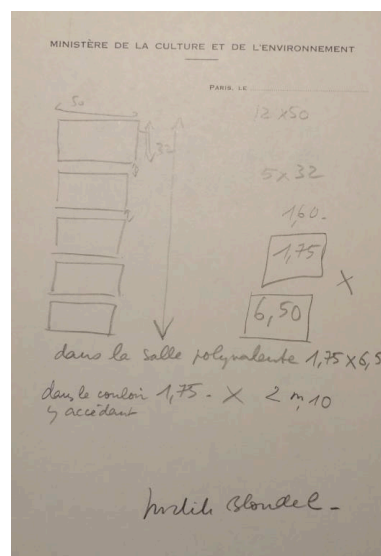 MINISTÈRE DE LA CULTURE ET DE L'ENVIRONNEMENT
PARIS, LE
50
12 x 50
32
5 x 32
1,60.
1,75
X
6,50
dans la salle polyvalente 1,75 x 6,5
dans le couloir 1,75. X 2 m, 10
y accédant
Judith Blondel